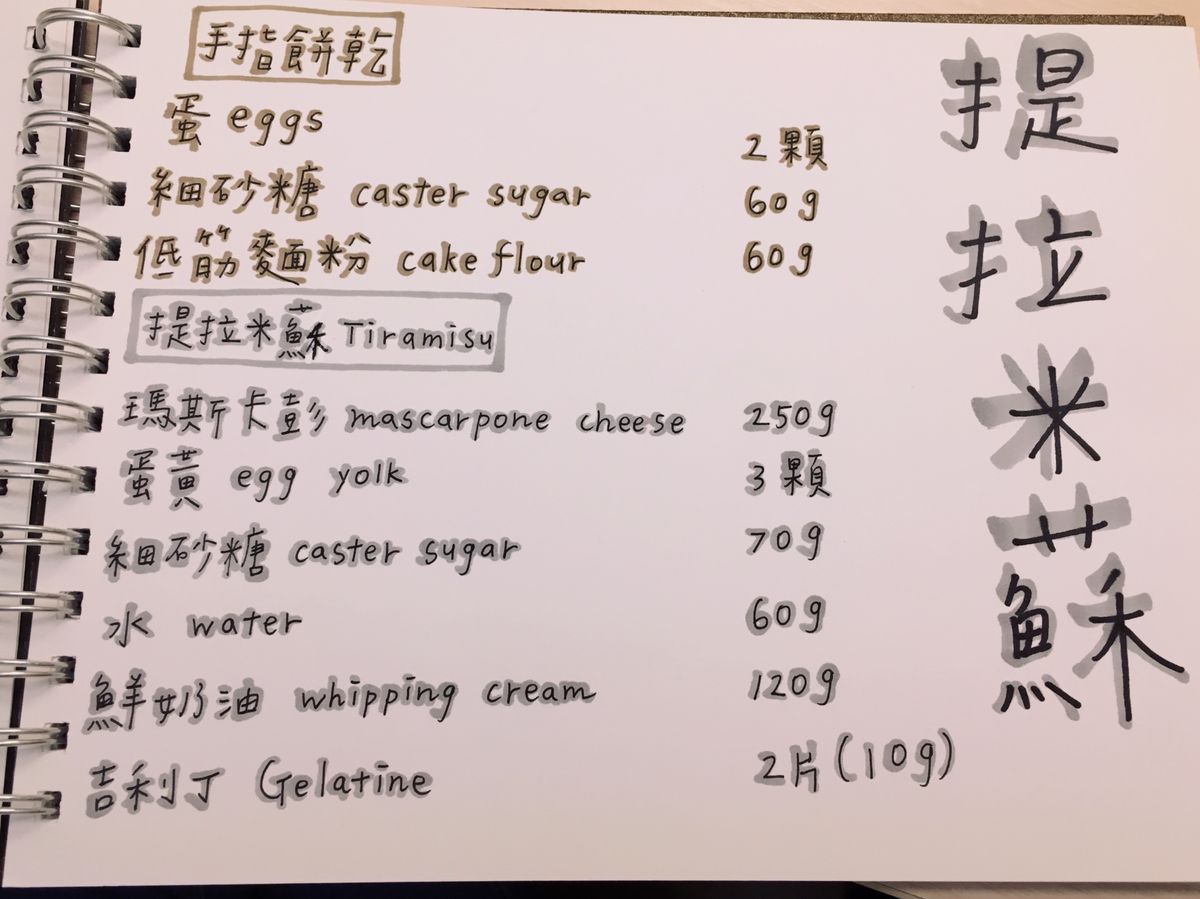 手指餅乾
蛋 eggs 2顆
細砂糖 caster sugar 60g
低筋麵粉 cake flour 60g
提拉米蘇 Tiramisu
瑪斯卡彭 mascarpone cheese 250g
蛋黃 egg yolk 3顆
細砂糖 caster sugar 70g
水 water 60g
鮮奶油 whipping cream 120g
吉利丁 Gelatine 2片(10g)
提拉米蘇